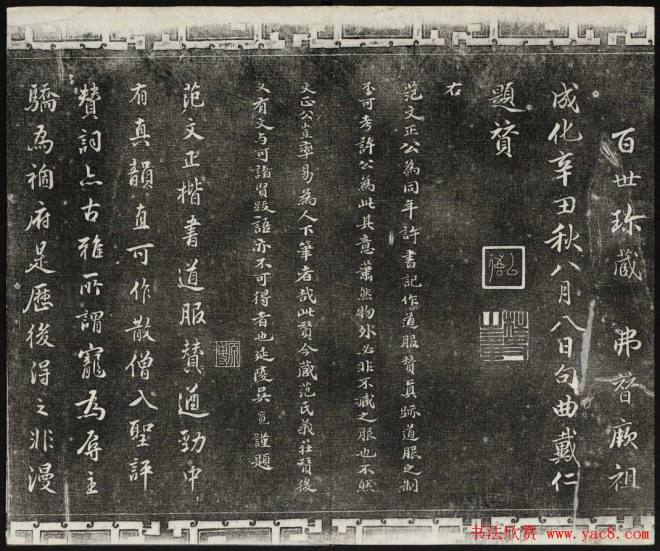 百世珍藏 弗替厥祖
成化辛丑秋八月八日句曲戴仁
題贊
右
范文正公為同年許書記作道服贊真跡道服之制
不可考許公為此其意蕭然物外必非不臧之服也不然
文正公豈率易為人下筆者哉此贊今藏范氏義莊贊後
又有文与可諸賢跋語亦不可得者也延陵吳寬謹題
范文正楷書道服贊遒勁中
有真韻直可作散僧入聖評
贊詞亦古雅所謂寵為辱主
驕為禍府是歷後得之非漫
书法欣赏 www.yac8.com